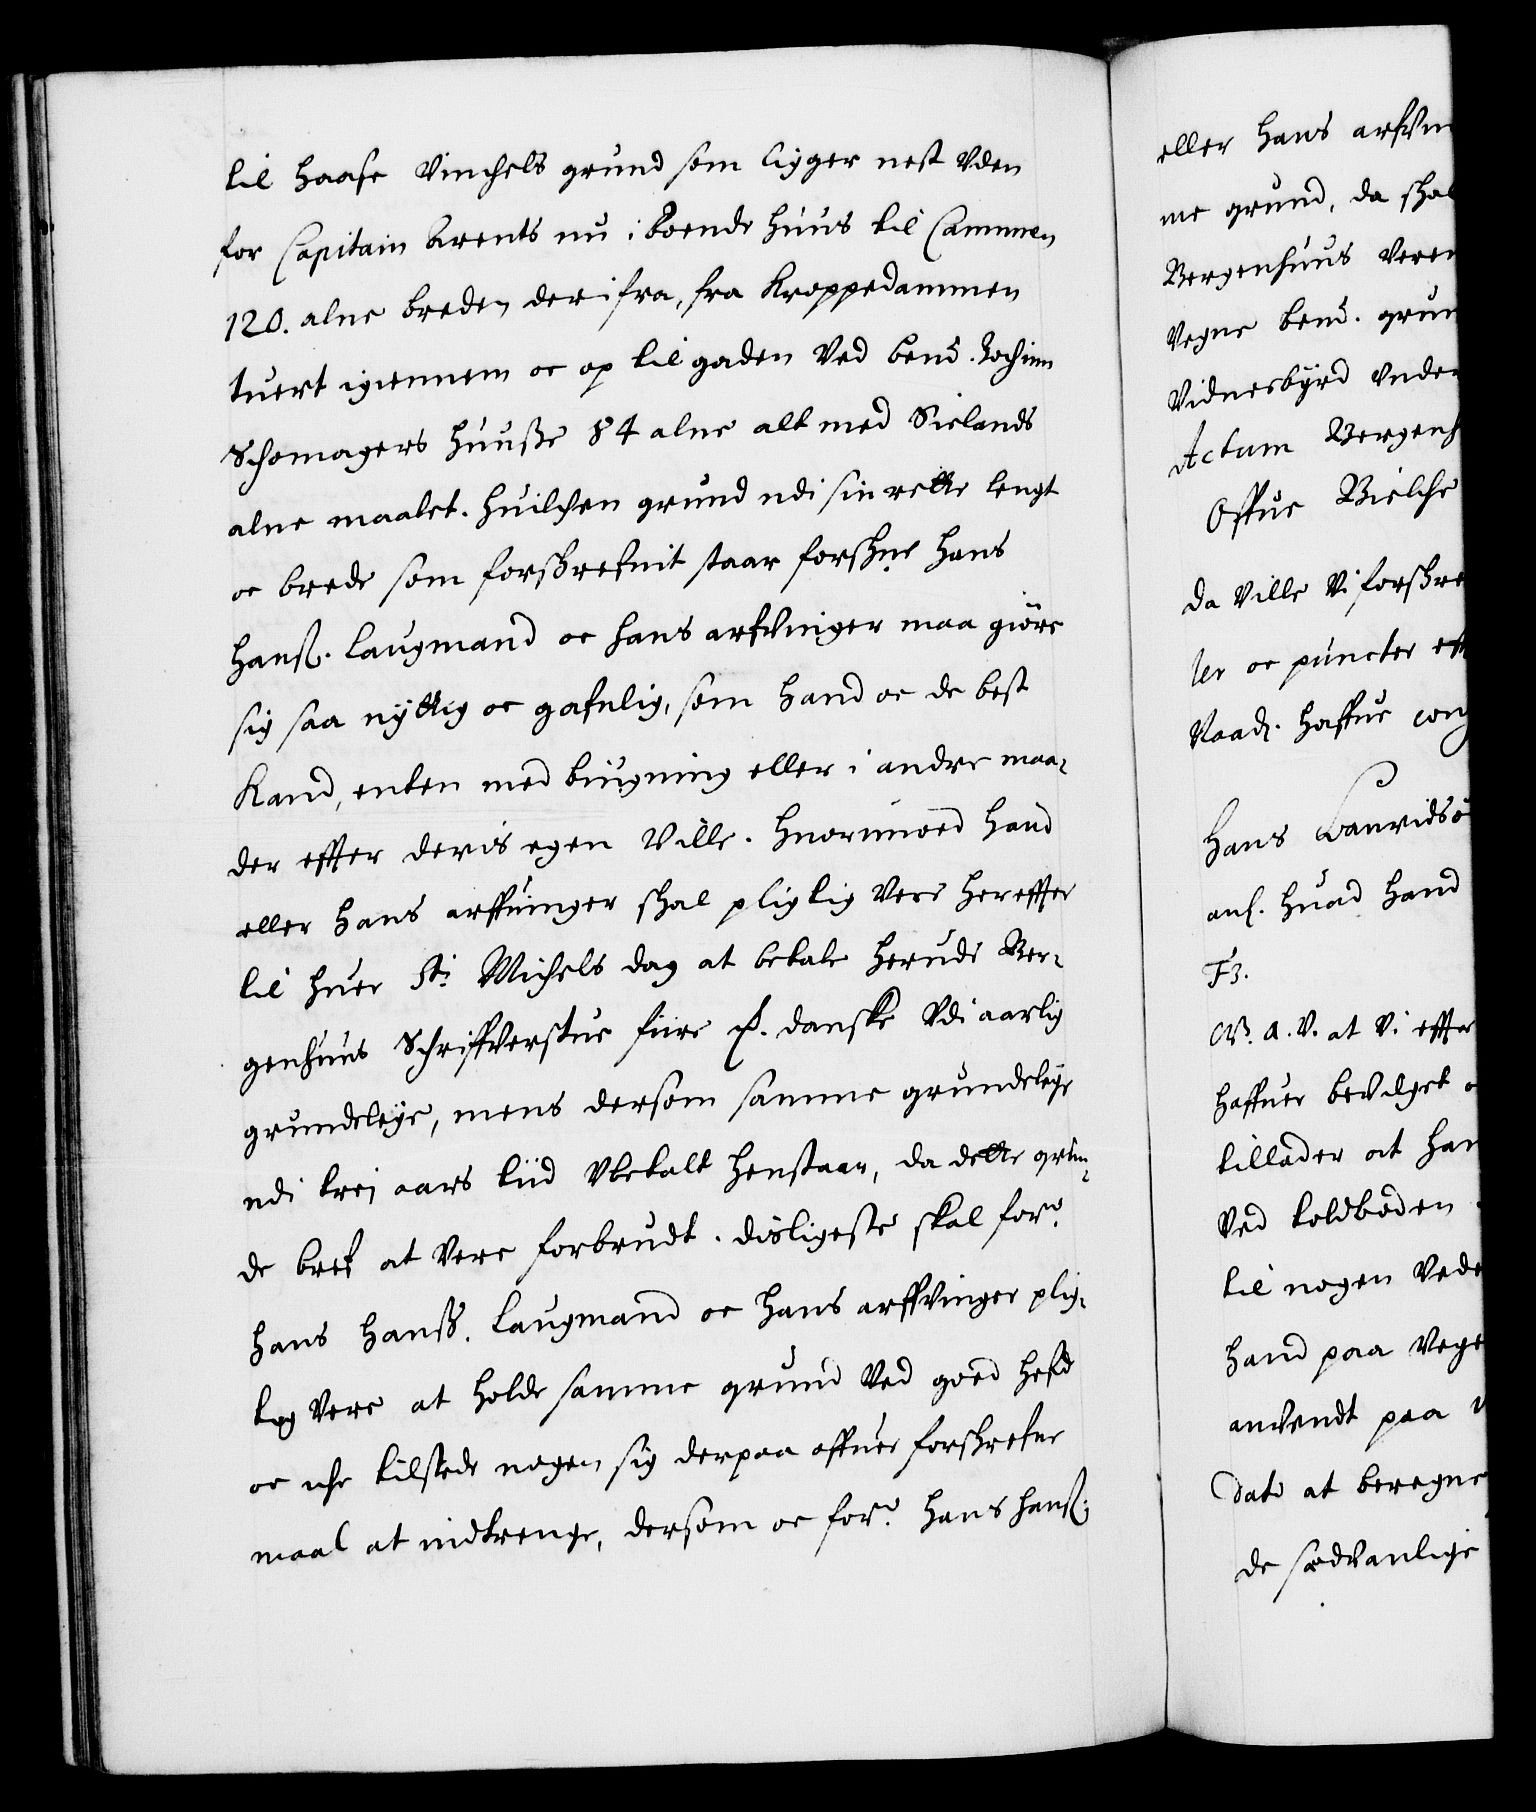 til Haase Vinchels grund som ligger nest Vden
for Capitain Arents nu iboende Huus til Cammen
120. alne breden derifra, fra Kroppedammen
tuert igiennem oc op til gaden Ved bend. Jochim
Schomagers Huusse 84 alne alt med Sielands
alne maalet. Huilchen grund udi sin rette lengt
oc brede som forskrefuit staar forskne Hans
Hanss. Laugmand oc hans arfvinger maa giöre
sig saa nyttig oc gafnlig, som hand oc de best
Kand, enten med bygning eller i andre maa-
der effter deris egen Ville. Huorimoed hand
eller hans arffuinger skal pligtig Vere hereffter
til huer St. Michels dag at betale herudi Ber-
genhuus Schriffverstue fiire ß. danske Vdi aarlig
grundeleye, mens dersom samme grundeleye
udi trej aars tiid Vbetalt henstaar, da dette grun-
de bref at Vere forbrudt. disligeste skal for:ne
Hans Hanss. Laugmand oc hans arffvinger plig-
tig Vere at holde samme grund Ved goed hefd
oc iche tilstede nogen sig derpaa offuer forskrefne
maal at indtrenge, dersom oc for:ne Hans Hanss:
eller hans arfvin
me grund, da skal
Bergenhuus Veren
Vegne bend. grun
Vidnesbyrd Vnder
Actum Bergenh
Offue Bielche
da Ville Vi forskre
ler oc puncter eff
Naad. haffue con
Hans Lauridsö
anl. huad hand
F3.
G. A. V. at Vi effter
haffuer bevilget o
tillader at han
Ved toldboden
til nogen Vede
hand paa Vege
anvendt paa
dato at beregne
de sædvanlige